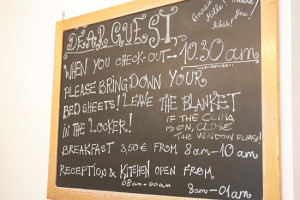 DEAR GUEST,
WHEN YOU CHECK-OUT → 10.30 am
PLEASE BRING DOWN YOUR
BED SHEETS! LEAVE THE BLANKET
IN THE LOCKER!
IF THE CLIMA
IS ON, CLOSE
THE WINDOW PLEASE!
BREAKFAST 3,50 € FROM 8am-10am
RECEPTION & KITCHEN OPEN FROM
08am-00am
8am-01am